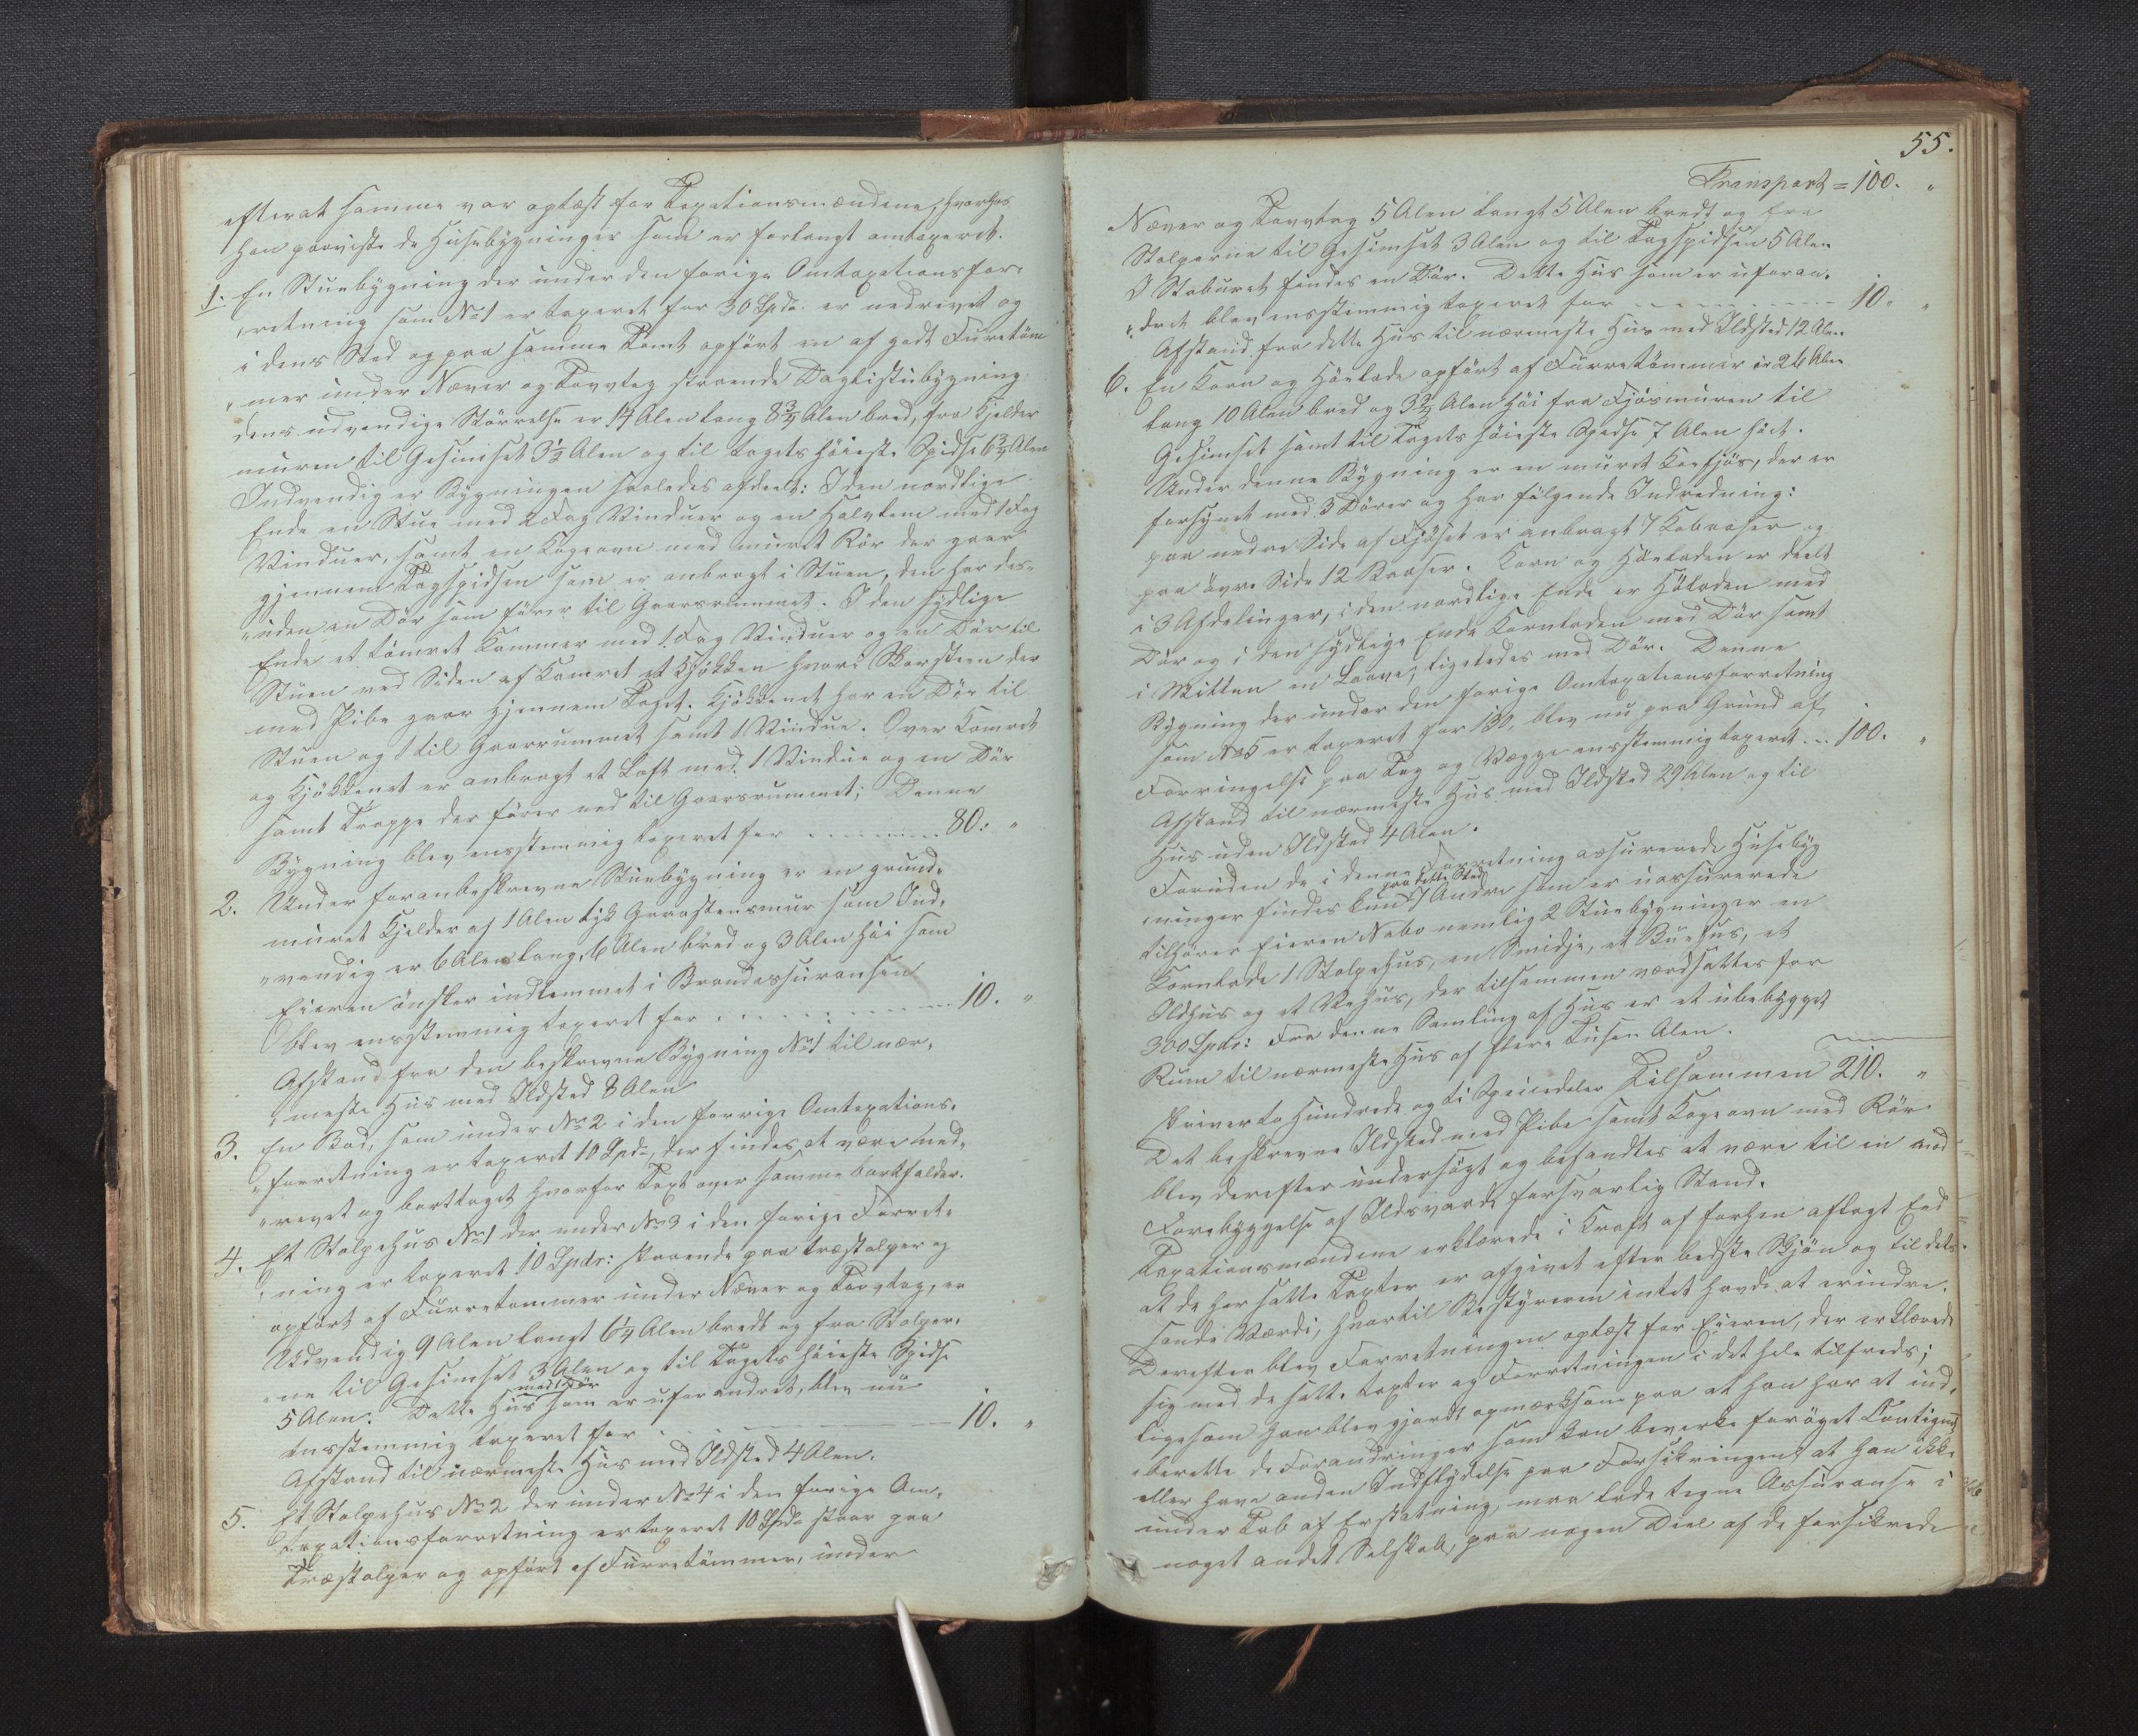 efterat samme var oplæst for Taxationsmændene, hvorhos
han paaviste de Husebygninger som er forlangt omtaxeret.
1. En Stuebygning der under den forige Omtaxationsfor-
retning som No 1 er taxeret for 30 Spd. er nedrevet og
i dens Sted og paa samme Tomt opført en af godt Furetøm
mer under Næver og Torvtag staaende Dagligstubygning
dens udvendige Størrelse er 14 Alen lang 8¾ Alen bred, fra Kjelder
muren til Gesimset 3½ Alen og til tagets høieste Spidse 6¾ Alen
Indvendig er Bygningen saaledes afdeelt: I den nordlige
Ende en Stue med 2 Fag Vinduer og en Halvlem med 1 Fag
Vinduer, samt en Kogeovn med muret Rør der gaar
gjennem Tagspidsen som er anbragt i Stuen, den har des-
uden en Dør som fører til Gaarsrummet. I den sydlige
Ende et tømret Kammer med 1 Fag Vinduer og en Dør til
Stuen ved Siden af Kamret et Kjøkken hvori Skorsteen der
med Pibe gaar gjennem Taget. Kjøkkenet har en Dør til
Stuen og 1 til Gaarrummet samt 1 Vindue. Over Kamret
og Kjøkkenet er anbragt et Loft med 1 Vindue og en Dør
samt Trappe der fører ned til Gaarsrummet; Denne
Bygning blev ensstemmig taxeret for 80. "
2. Under foranbeskrevne Stuebygning er en grund-
muret Kjelder af 1 Alen tyk Graastensmur som Ind-
vendig er 6 Alen lang, 6 Alen bred og 3 Alen høi som
Eieren ønsker indlemmet i Brandassuransen
blev ensstemmig taxeret for 10. "
Afstand fra den beskrevne Bygning No 1 til nær-
meste Hus med Ildsted 8 Alen
3. En Bod, som under No 2 i den forrige Omtaxations-
forretning er taxeret 10 Spd., der findes at være ned-
revet og borttaget hvorfor Taxt over samme bortfalder.
4. Et Stolpehus No 1 der under No 3 i den forige Forret-
ning er taxeret 10 Spdr: staaende paa træstolper og
opført af Furretømmer under Næver og Torvtag, er
Udvendig 9 Alen langt 6¼ Alen bredt og fra Stolper-
ne til Gesimset 3 Alen og til Tagets høieste Spidse
med 1 Dør
5 Alen. Dette Hus som er uforandret, blev nu
ensstemmig taxeret for 10. "
Afstand til nærmeste Hus med Ildsted 4 Alen.
5. Et Stolpehus No 2 der under No 4 i den forige Om-
taxationsforretning er taxeret 10 Spd. staar paa
Træstolper og opført af Furretømmer, under
55.
Transport = 100. "
Næver og Torvtag 5 Alen langt 5 Alen bredt og fra
Stolperne til Gesimset 3 Alen og til Tagspidsen 5 Alen
I Staburet findes en Dør. Dette Hus som er uforan-
dret blev ensstemmig taxeret for 10. "
Afstand fra dette Hus til nærmeste Hus med Ildsted 12 Alen
6. En Korn og Høelade opført af Furretømmer er 26 Alen
lang 10 Alen bred og 3¾ Alen høi fra Fjøsmuren til
Gesimset samt til Tagets høieste Spidse 7 Alen høit.
Under denne Bygning er en muret Koefjøs, der er
forsynet med 3 Dører og har følgende Indredning:
paa nedre Side af Fjøset er anbragt 7 Kobaaser og
paa øvre Side 12 Baaser. Korn og Høeladen er deelt
i 3 Afdelinger, i den nordlige Ende er Høladen med
Dør og i den sydlige Ende Kornladen med Dør samt
i Mitten en Laave, ligeledes med Dør. Denne
Bygning der under den forige Omtaxationsforretning
som No 5 er taxeret for 130, blev nu paa Grund af
Forringelse paa Tag og Vægge ensstemmig taxeret 100. "
Afstand til nærmeste Hus med Ildsted 29 Alen og til
Hus uden Ildsted 4 Alen.
Foruden de i denne Forretning assurerede Husebyg
paa dette Sted
ninger findes kun 7 Andre som er uassurerede
tilhører Eieren Nabo nemlig 2 Stuebygninger en
Kornlade 1 Stolpehus, en Smidje, et Buehus, et
Ildhus og et Vehus, der tilsammen værdsættes for
300 Spdr: Fra denne Samling af Hus er et ubebygget
Rum til nærmeste Hus af flere Tusen Alen.
Skriver to Hundrede og ti Speciedaler Tilsammen 210. "
Det beskrevne Ildsted med Pibe samt Kogeovn med Rør
blev derefter undersøgt og befandtes at være til en mod
Forebyggelse af Ildsvaade forsvarlig Stand.
Taxationsmændene erklærede i Kraft af forhen aflagt Eed
at de har satte Taxter er afgivet efter bedste Skjøn og til dets
sande Værdi, hvortil Bestyreren intet havde at erindre.
Derefter blev Forretningen oplæst for Eieren, der erklærede
sig med de satte taxter og Forretningen i det hele tilfreds;
ligesom han blev gjordt opmærksom paa at han har at ind-
berette de Forandringer som kan bevirke forøget Contigent
eller have anden Indflydelse paa Forsikringen, at han ikke
under Tab af Erstatning, maa lade tegne Assuranse i
noget andet Selskab, paa nogen Deel af de forsikrede